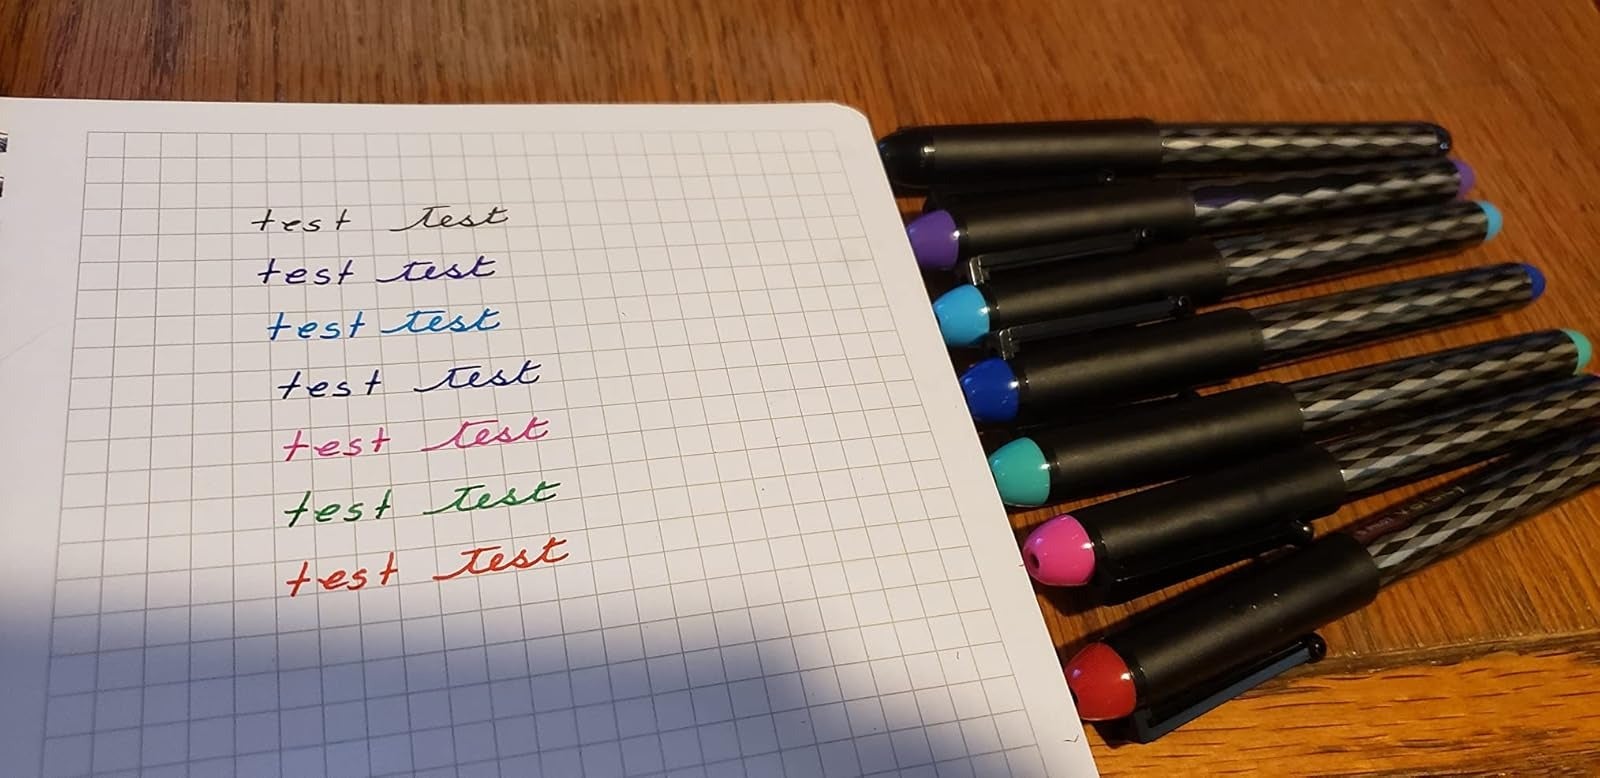 test test
test test
test test
test test
test test
test test
test test